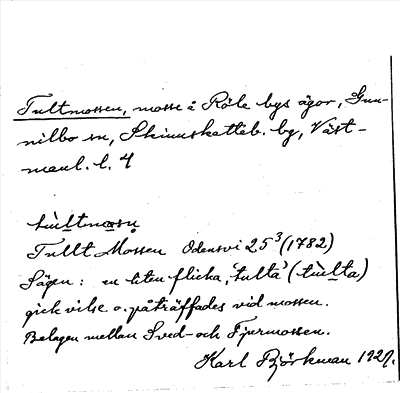 Tultmossen, mosse å Röle bys ägor, Gun-
nilbo sn, Skinnskatteb. bg, Väst-
manl. l. 4
Tullt Mossen Odensvi 25³ (1782)
Sägen: en liten flicka, 'tulta' (tu̇lta)
gick vilse o. påträffades vid mossen.
Belägen mellan Sved- och Fjurmossen.
Karl Björkman 1927.